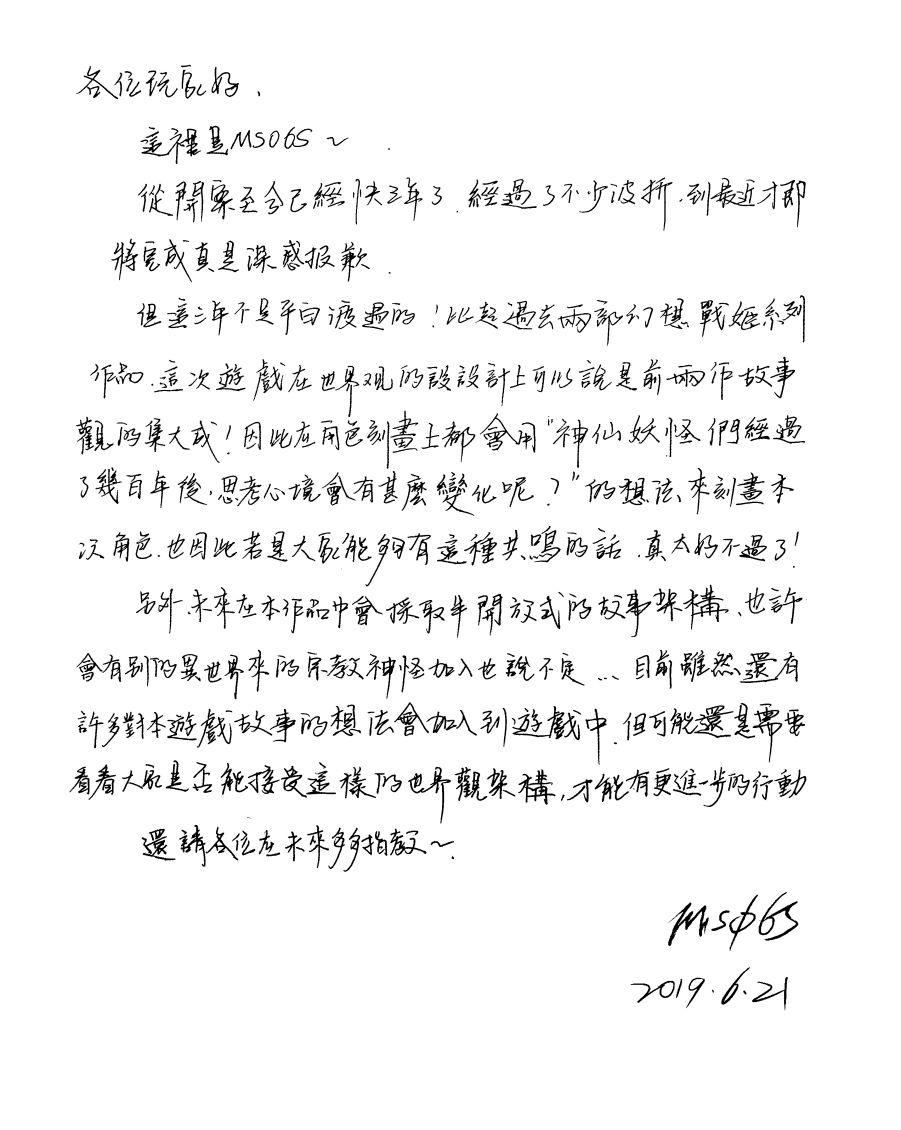 各位玩家好、
這裡是MS06S～
從開案至今已經快三年了.經過了不少波折、到最近才即
將完成真是深感抱歉.
但這三年不是平白渡過的！比起過去兩部幻想戰姬系列
作品、這次遊戲在世界观的設設計上可以說是前兩作故事
觀的集大成！因此在角色刻畫上都會用"神仙妖怪們經過
了幾百年後,思考心境會有甚麼變化呢？"的想法、來刻畫本
次角色、也因此若是大家能夠有這種共鳴的話、真太好不過了!
另外、未來在本作品中會採取半開放式的故事架構、也許
會有别的異世界來的宗教神怪加入也說不定...目前雖然還有
許多對本遊戲故事的想法會加入到遊戲中、但可能還是需要
看看大家是否能接受這樣的世界觀架構，才能有更進一步的行動
還請各位在未來多多指教～.
MS06S
2019.6.21